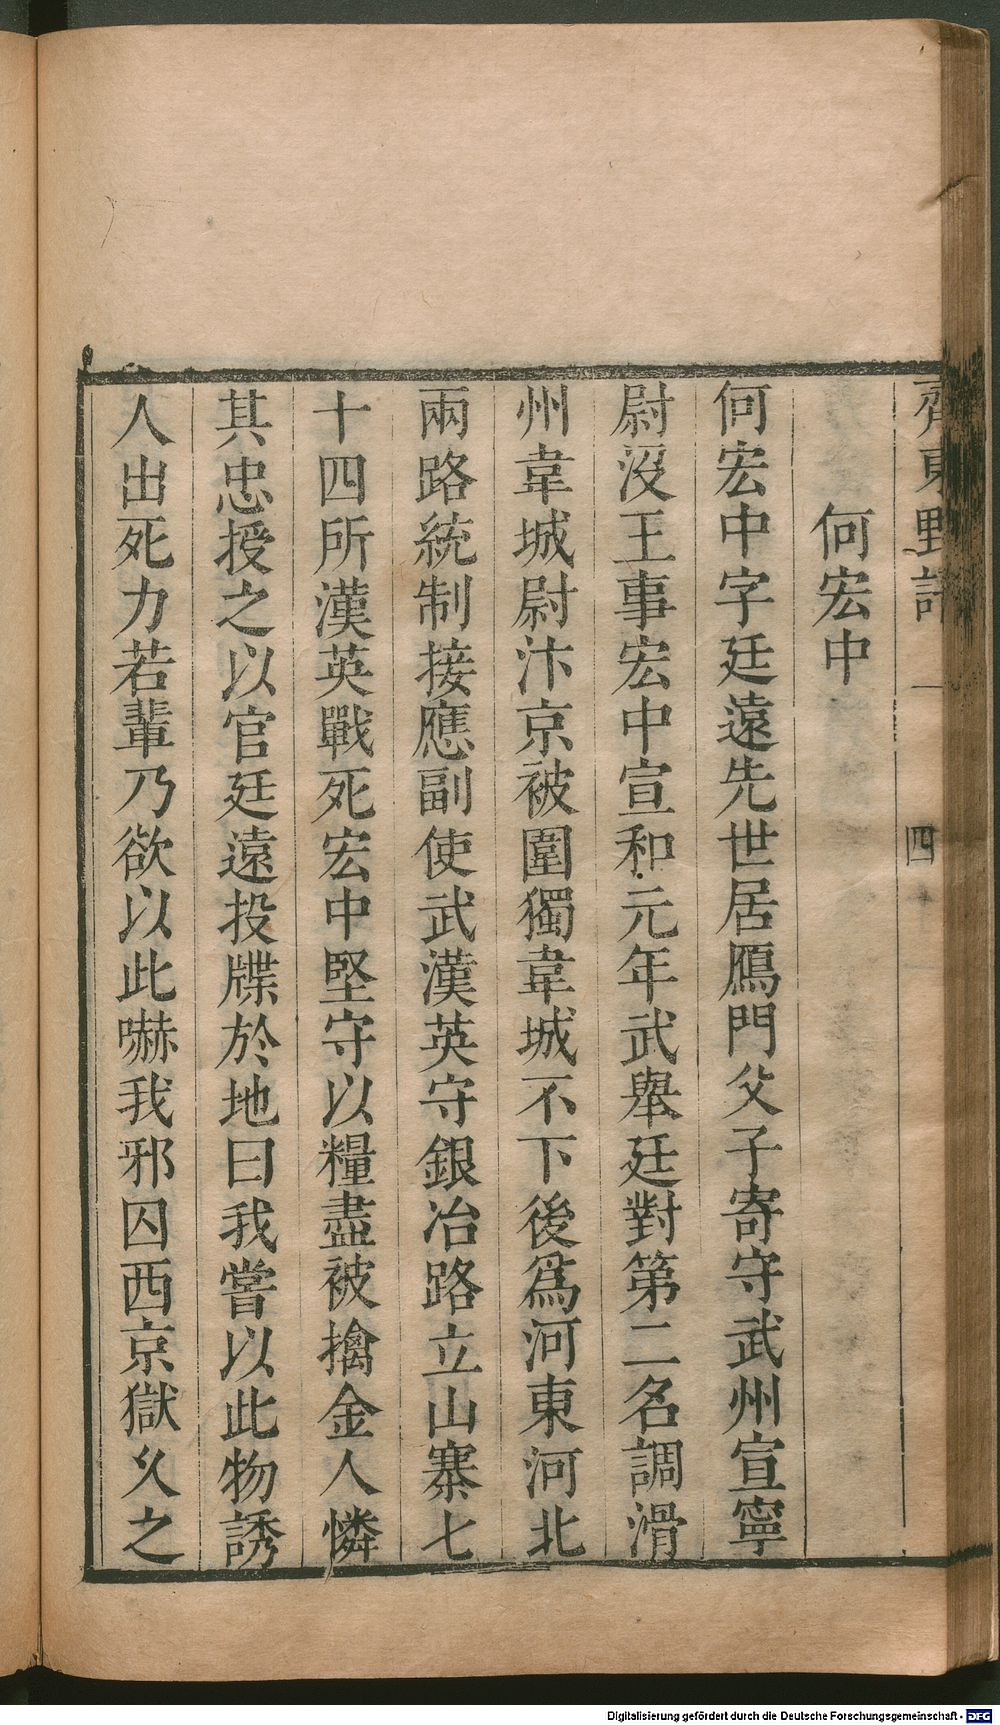 齊東野語 一 四十
何宏中
何宏中字廷遠先世居鴈門父子寄守武州宣寧
尉沒王事宏中宣和元年武舉廷對第二名調滑
州韋城尉汴京被圍獨韋城不下後爲河東河北
兩路統制接應副使武漢英守銀冶路立山寨七
十四所漢英戰死宏中堅守以糧盡被擒金人憐
其忠授之以官廷遠投牒於地曰我嘗以此物誘
人出死力若輩乃欲以此嚇我邪囚西京獄久之
Digitalisierung gefördert durch die Deutsche Forschungsgemeinschaft - DFG